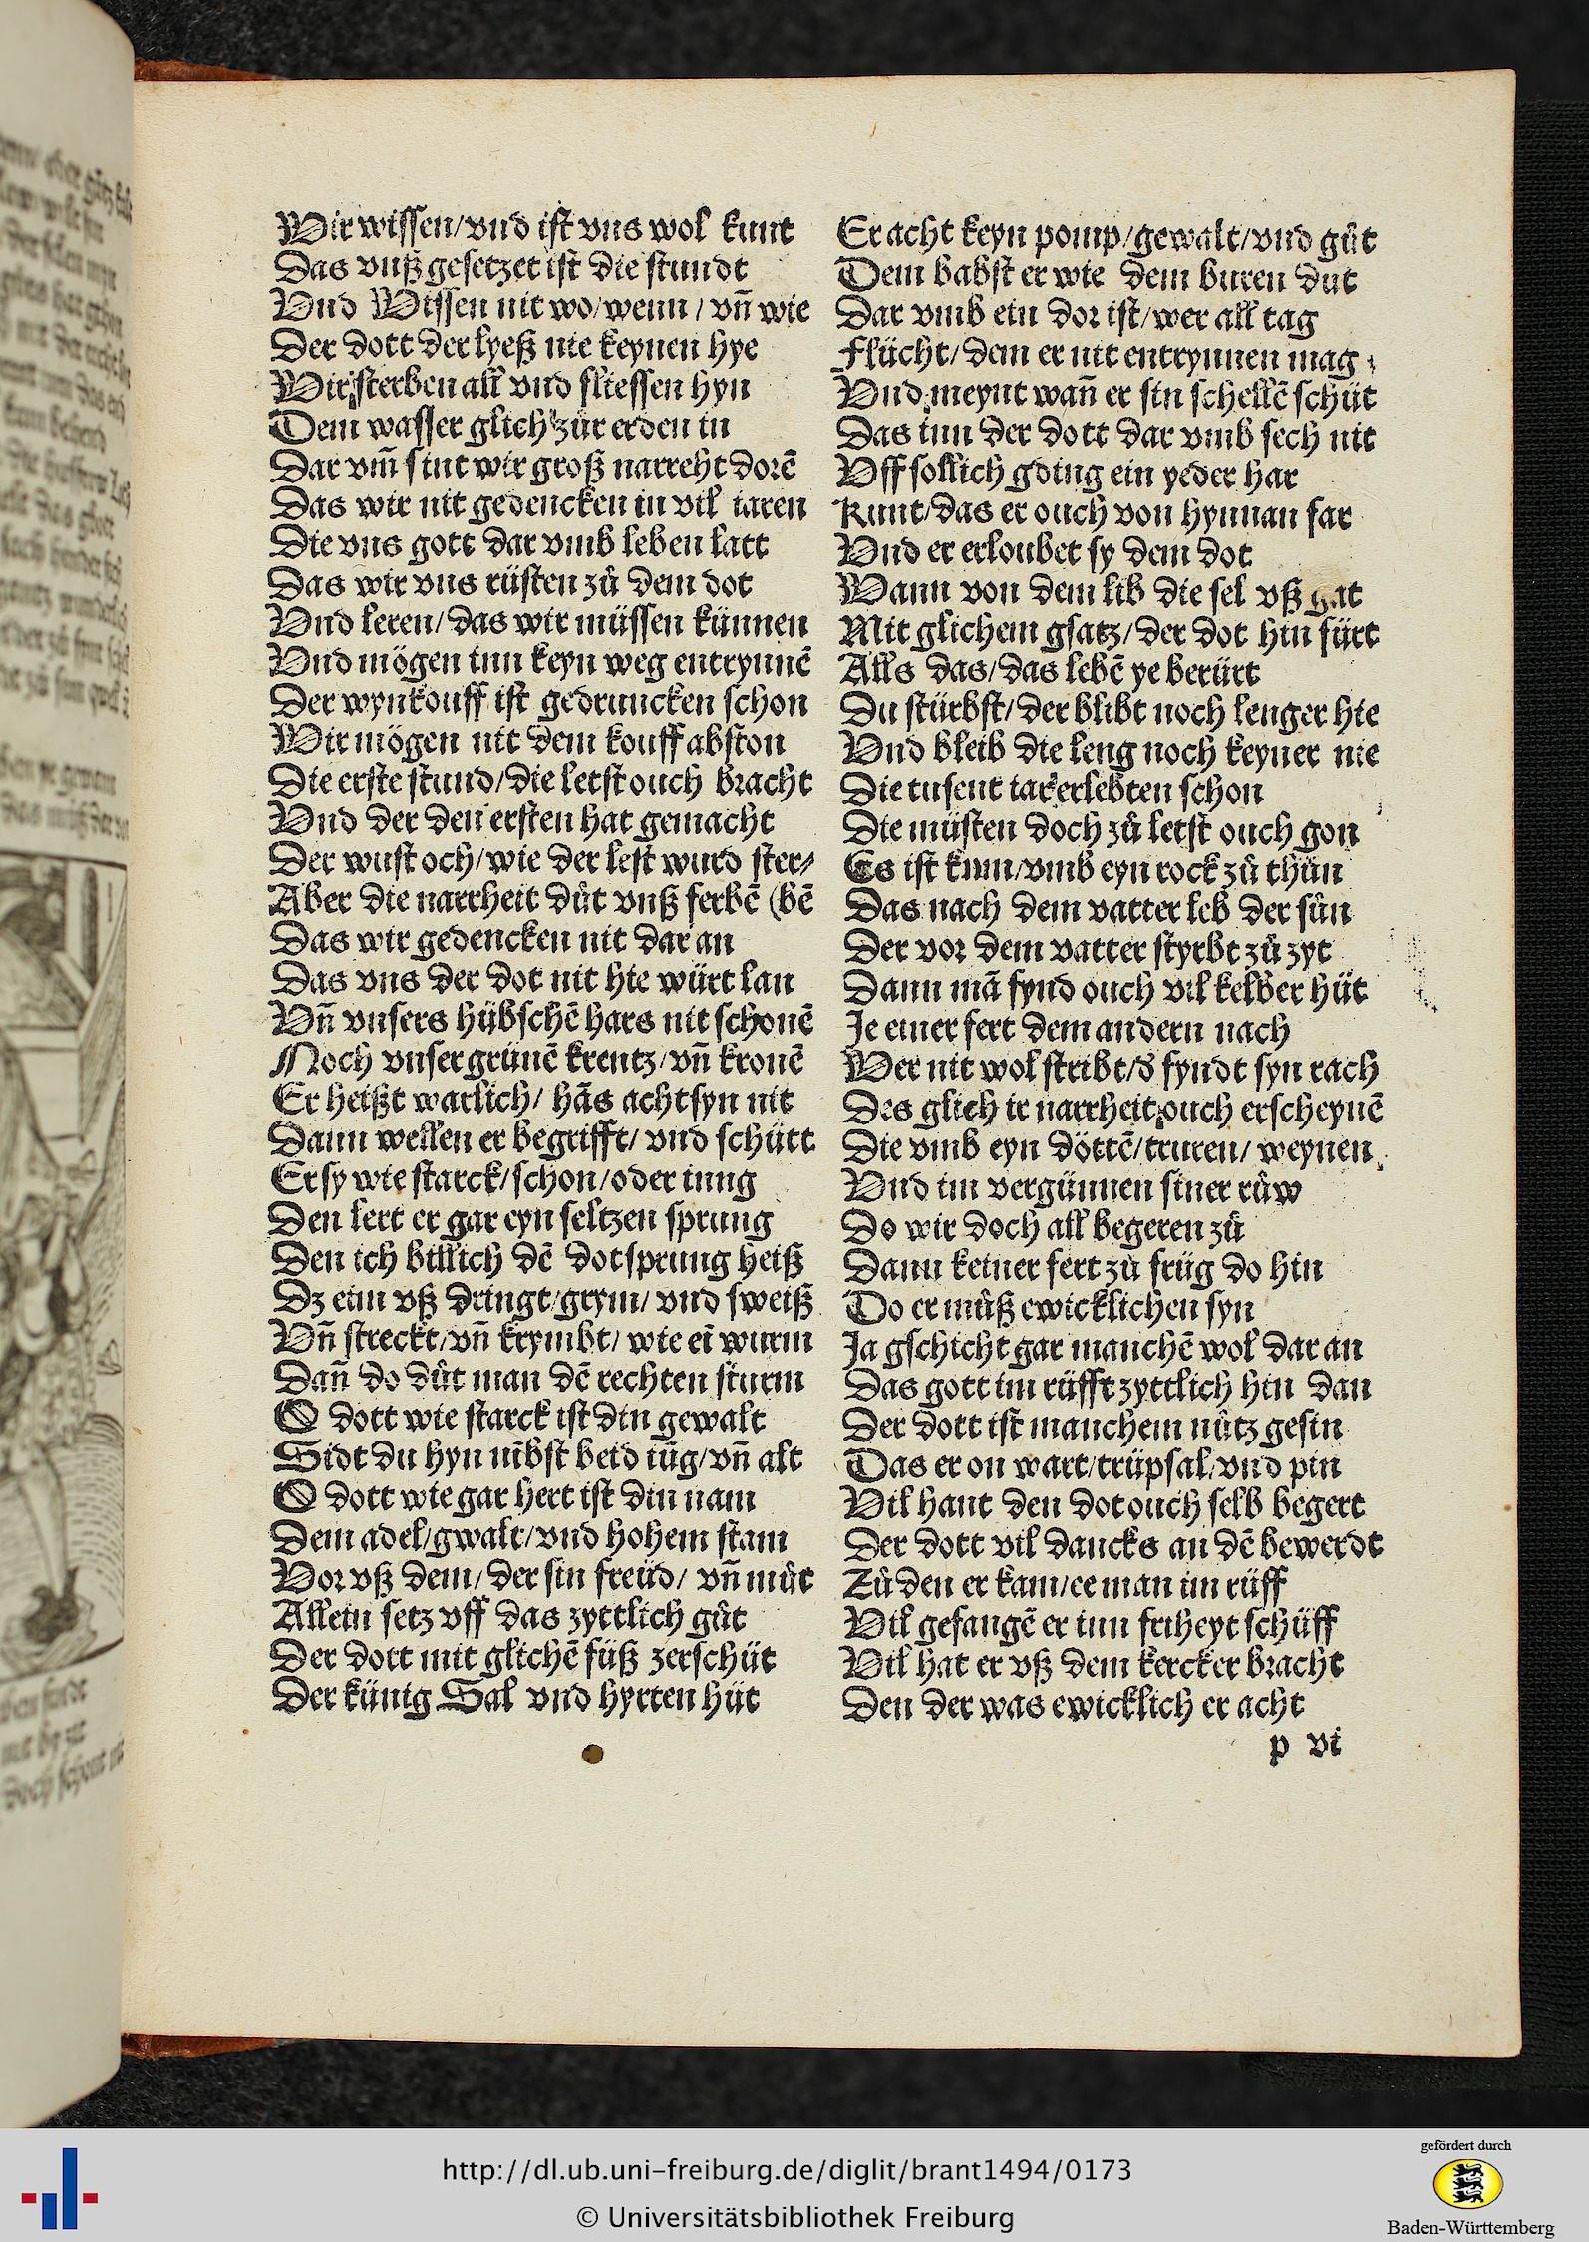 Wir wissen/vnd ist vns wol kunt
Das vnß gesetzet ist die stundt
Vnd Wissen nit wo/wenn/vn̄ wie
Der dott der lyeß nie keynen hye
Wir sterben all vnd fliessen hyn
Dem wasser glich zůr erden in
Dar vm̄ sint wir groß narreht dorē
Das wir nit gedencken in vil iaren
Die vns gott dar vmb leben latt
Das wir vns rüsten zů dem dot
Vnd leren/das wir müssen künnen
Vnd mögen inn keyn weg entrynnē
Der wynkouff ist gedruncken schon
Wir mögen nit dem kouff abston
Die erste stund/die letst ouch bracht
Vnd der den ersten hat gemacht
Der wust och/wie der lest wurd ster⸗
Aber die narrheit důt vnß ferbē (bē
Das wir gedencken nit dar an
Das vns der dot nit hie würt lan
Vn̄ vnsers hübschē hars nit schonē
Noch vnser grünē krentz/vn̄ kronē
Er heißt warlich/hās acht syn nit
Dann wellen er begrifft/vnd schütt
Er sy wie starck/schon/oder iung
Den lert er gar eyn seltzen sprung
Den ich billich dē dotsprung heiß
Dz eim vß dringt/grym/vnd sweiß
Vn̄ streckt/vn̄ krymbt/wie eī wurm
Dan̄ do důt man dē rechten sturm
O dott wie starck ist din gewalt
Sidt du hyn nībst beid iūg/vn̄ alt
O dott wie gar hert ist din nam
Dem adel/gwalt/vnd hohem stam
Vor vß dem/der sin freüd/vn̄ můt
Allein setz vff das zyttlich gůt
Der dott mit glichē füß zerschüt
Der künig Sal vnd hyrten hüt
Er acht keyn pomp/gewalt/vnd gůt
Dem babst er wie dem buren dut
Dar vmb ein dor ist/wer all tag
Flücht/dem er nit entrynnen mag
Vnd meynt wan̄ er sin schellē schüt
Das inn der dott dar vmb sech nit
Vff sollich gding ein yeder har
Kunt/das er ouch von hynnan far
Vnd er erloubet sy dem dot
Wann von dem lib die sel vß gat
Mit glichem gsatz/der dot hin fürt
Alls das/das lebē ye berürt
Du stürbst/der blibt noch lenger hie
Vnd bleib die leng noch keyner nie
Die tusent iar erlebten schon
Die müsten doch zů letst ouch gon
Es ist kum/vmb eyn rock zů thůn
Das nach dem vatter leb der sůn
Der vor dem vatter styrbt zů zyt
Dann mā fynd ouch vil kelber hüt
Je einer fert dem andern nach
Wer nit wol stribt/d̕ fyndt syn rach
Des glich ir narrheit ouch erscheynē
Die vmb eyn döttē/truren/weynen
Vnd im vergünnen siner růw
Do wir doch all begeren zů
Dann keiner fert zů früg do hin
Do er můß ewicklichen syn
Ja gschicht gar manchē wol dar an
Das gott im rüfft zyttlich hin dan
Der dott ist manchem nütz gesin
Das er on wart/trüpsal/vnd pin
Vil hant den dot ouch selb begert
Der dott vil dancks an dē bewerdt
Zů den er kam/ee man im rüff
Vil gefangē er inn friheyt schüff
Vil hat er vß dem kercker bracht
Den der was ewicklich er acht
p vi
http://dl.ub.uni-freiburg.de/diglit/brant1494/0173
© Universitätsbibliothek Freiburg
gefördert durch
Baden-Württemberg